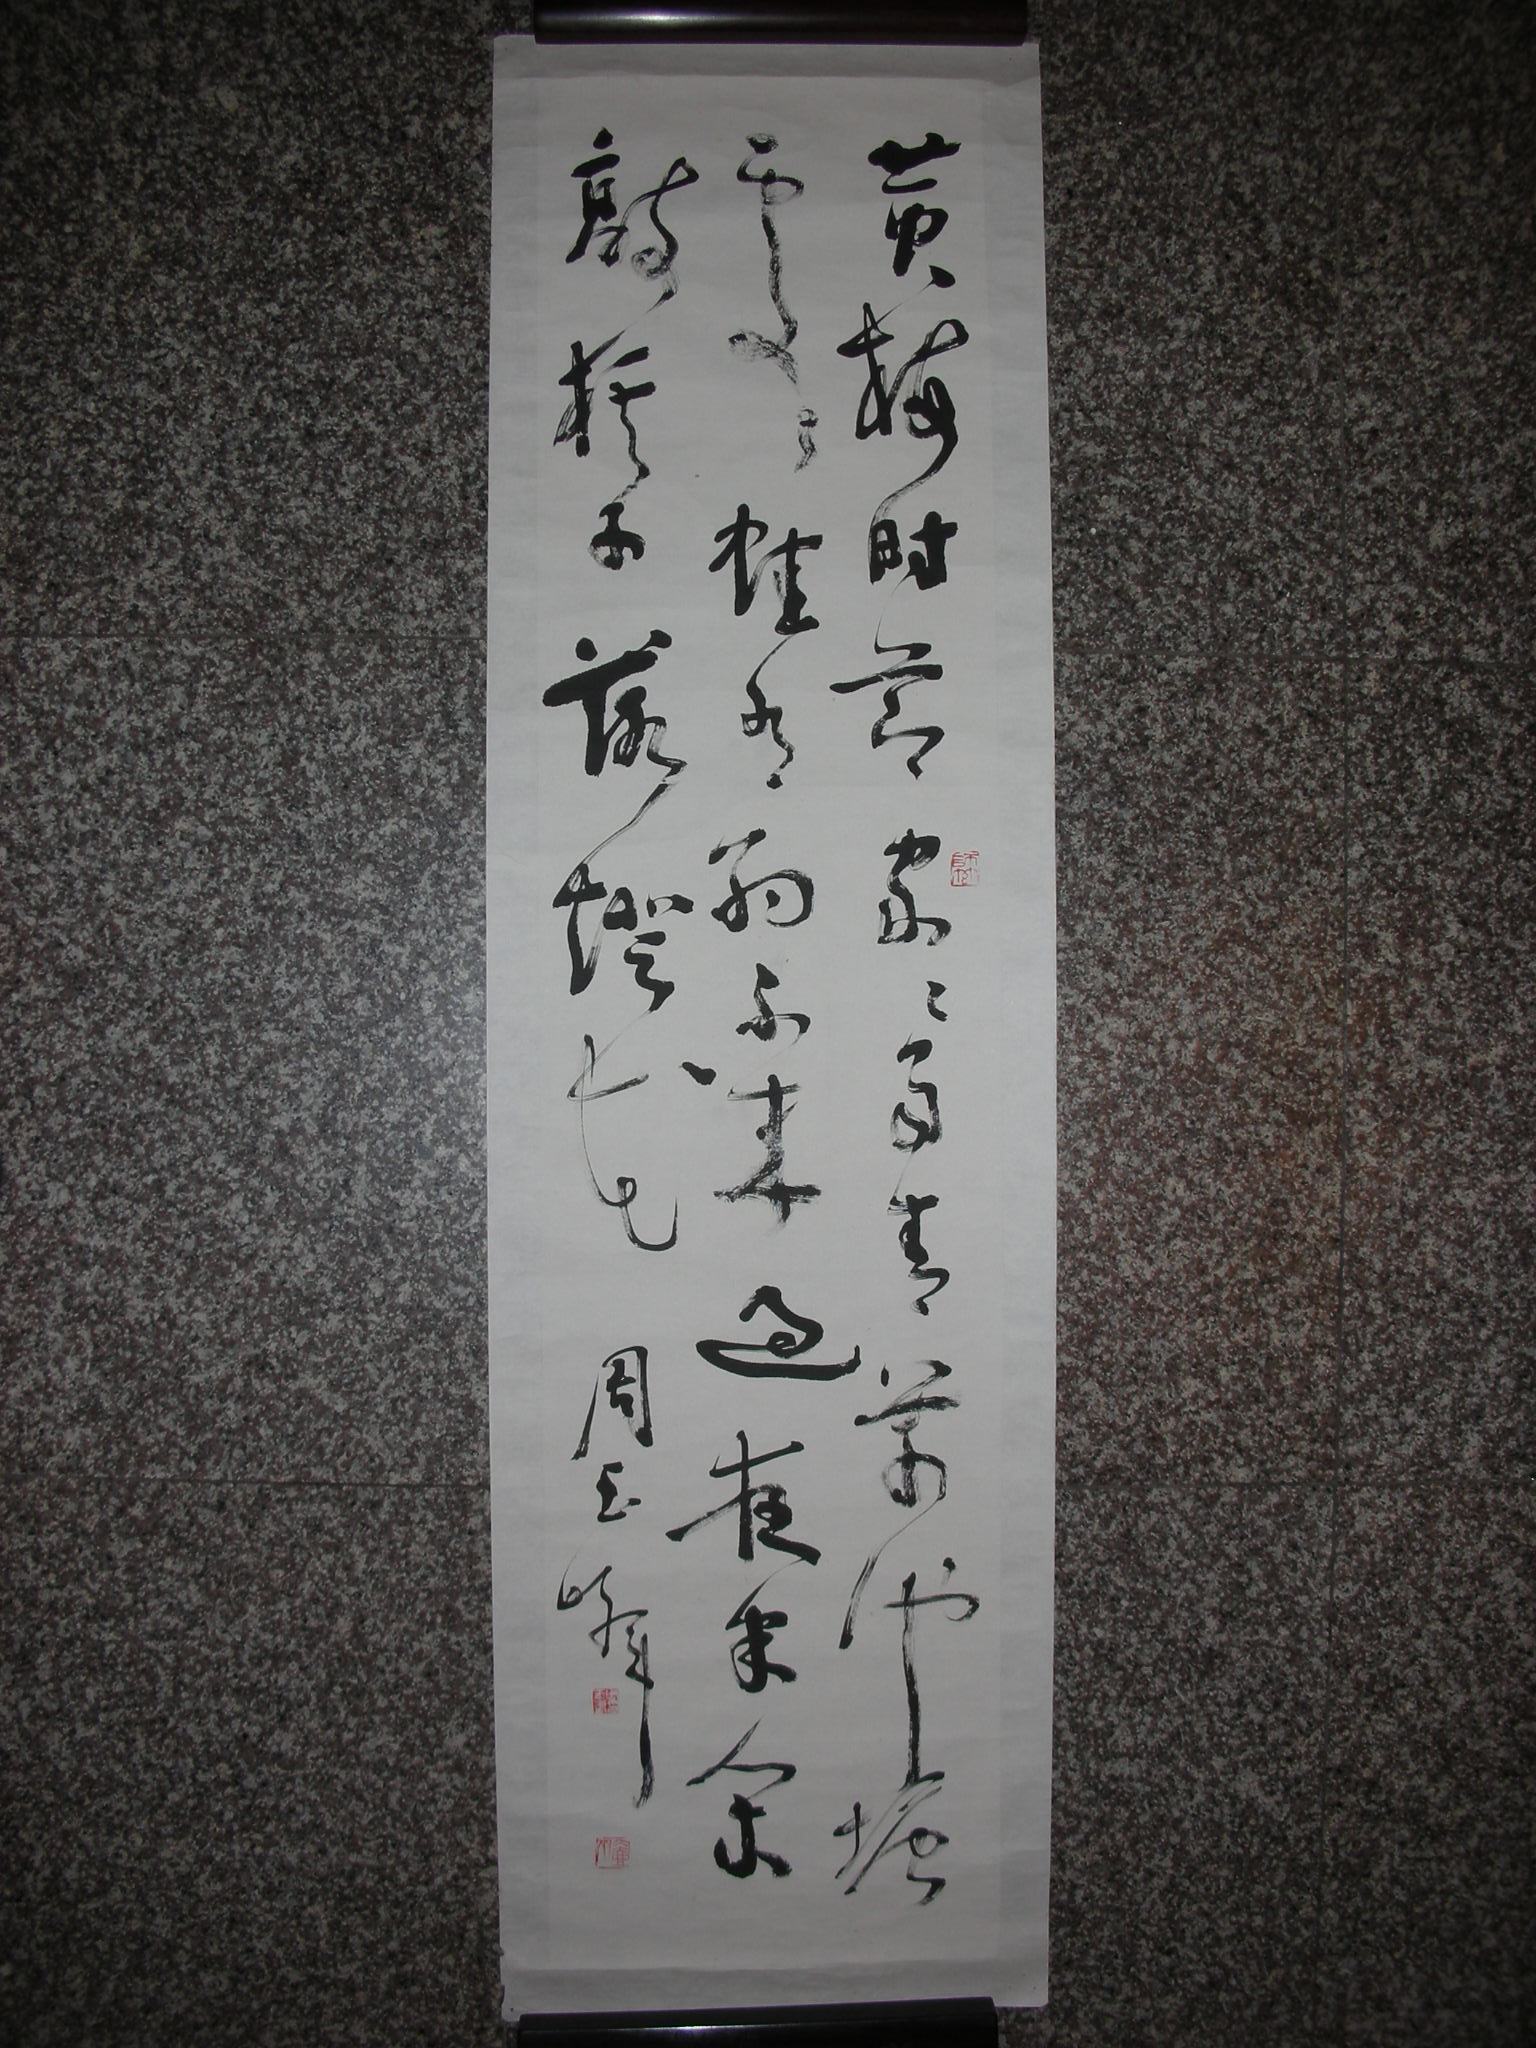 黄梅时节家々雨青草池塘
處々蛙有约不来过夜半闲
敲棋子落燈花
周玉